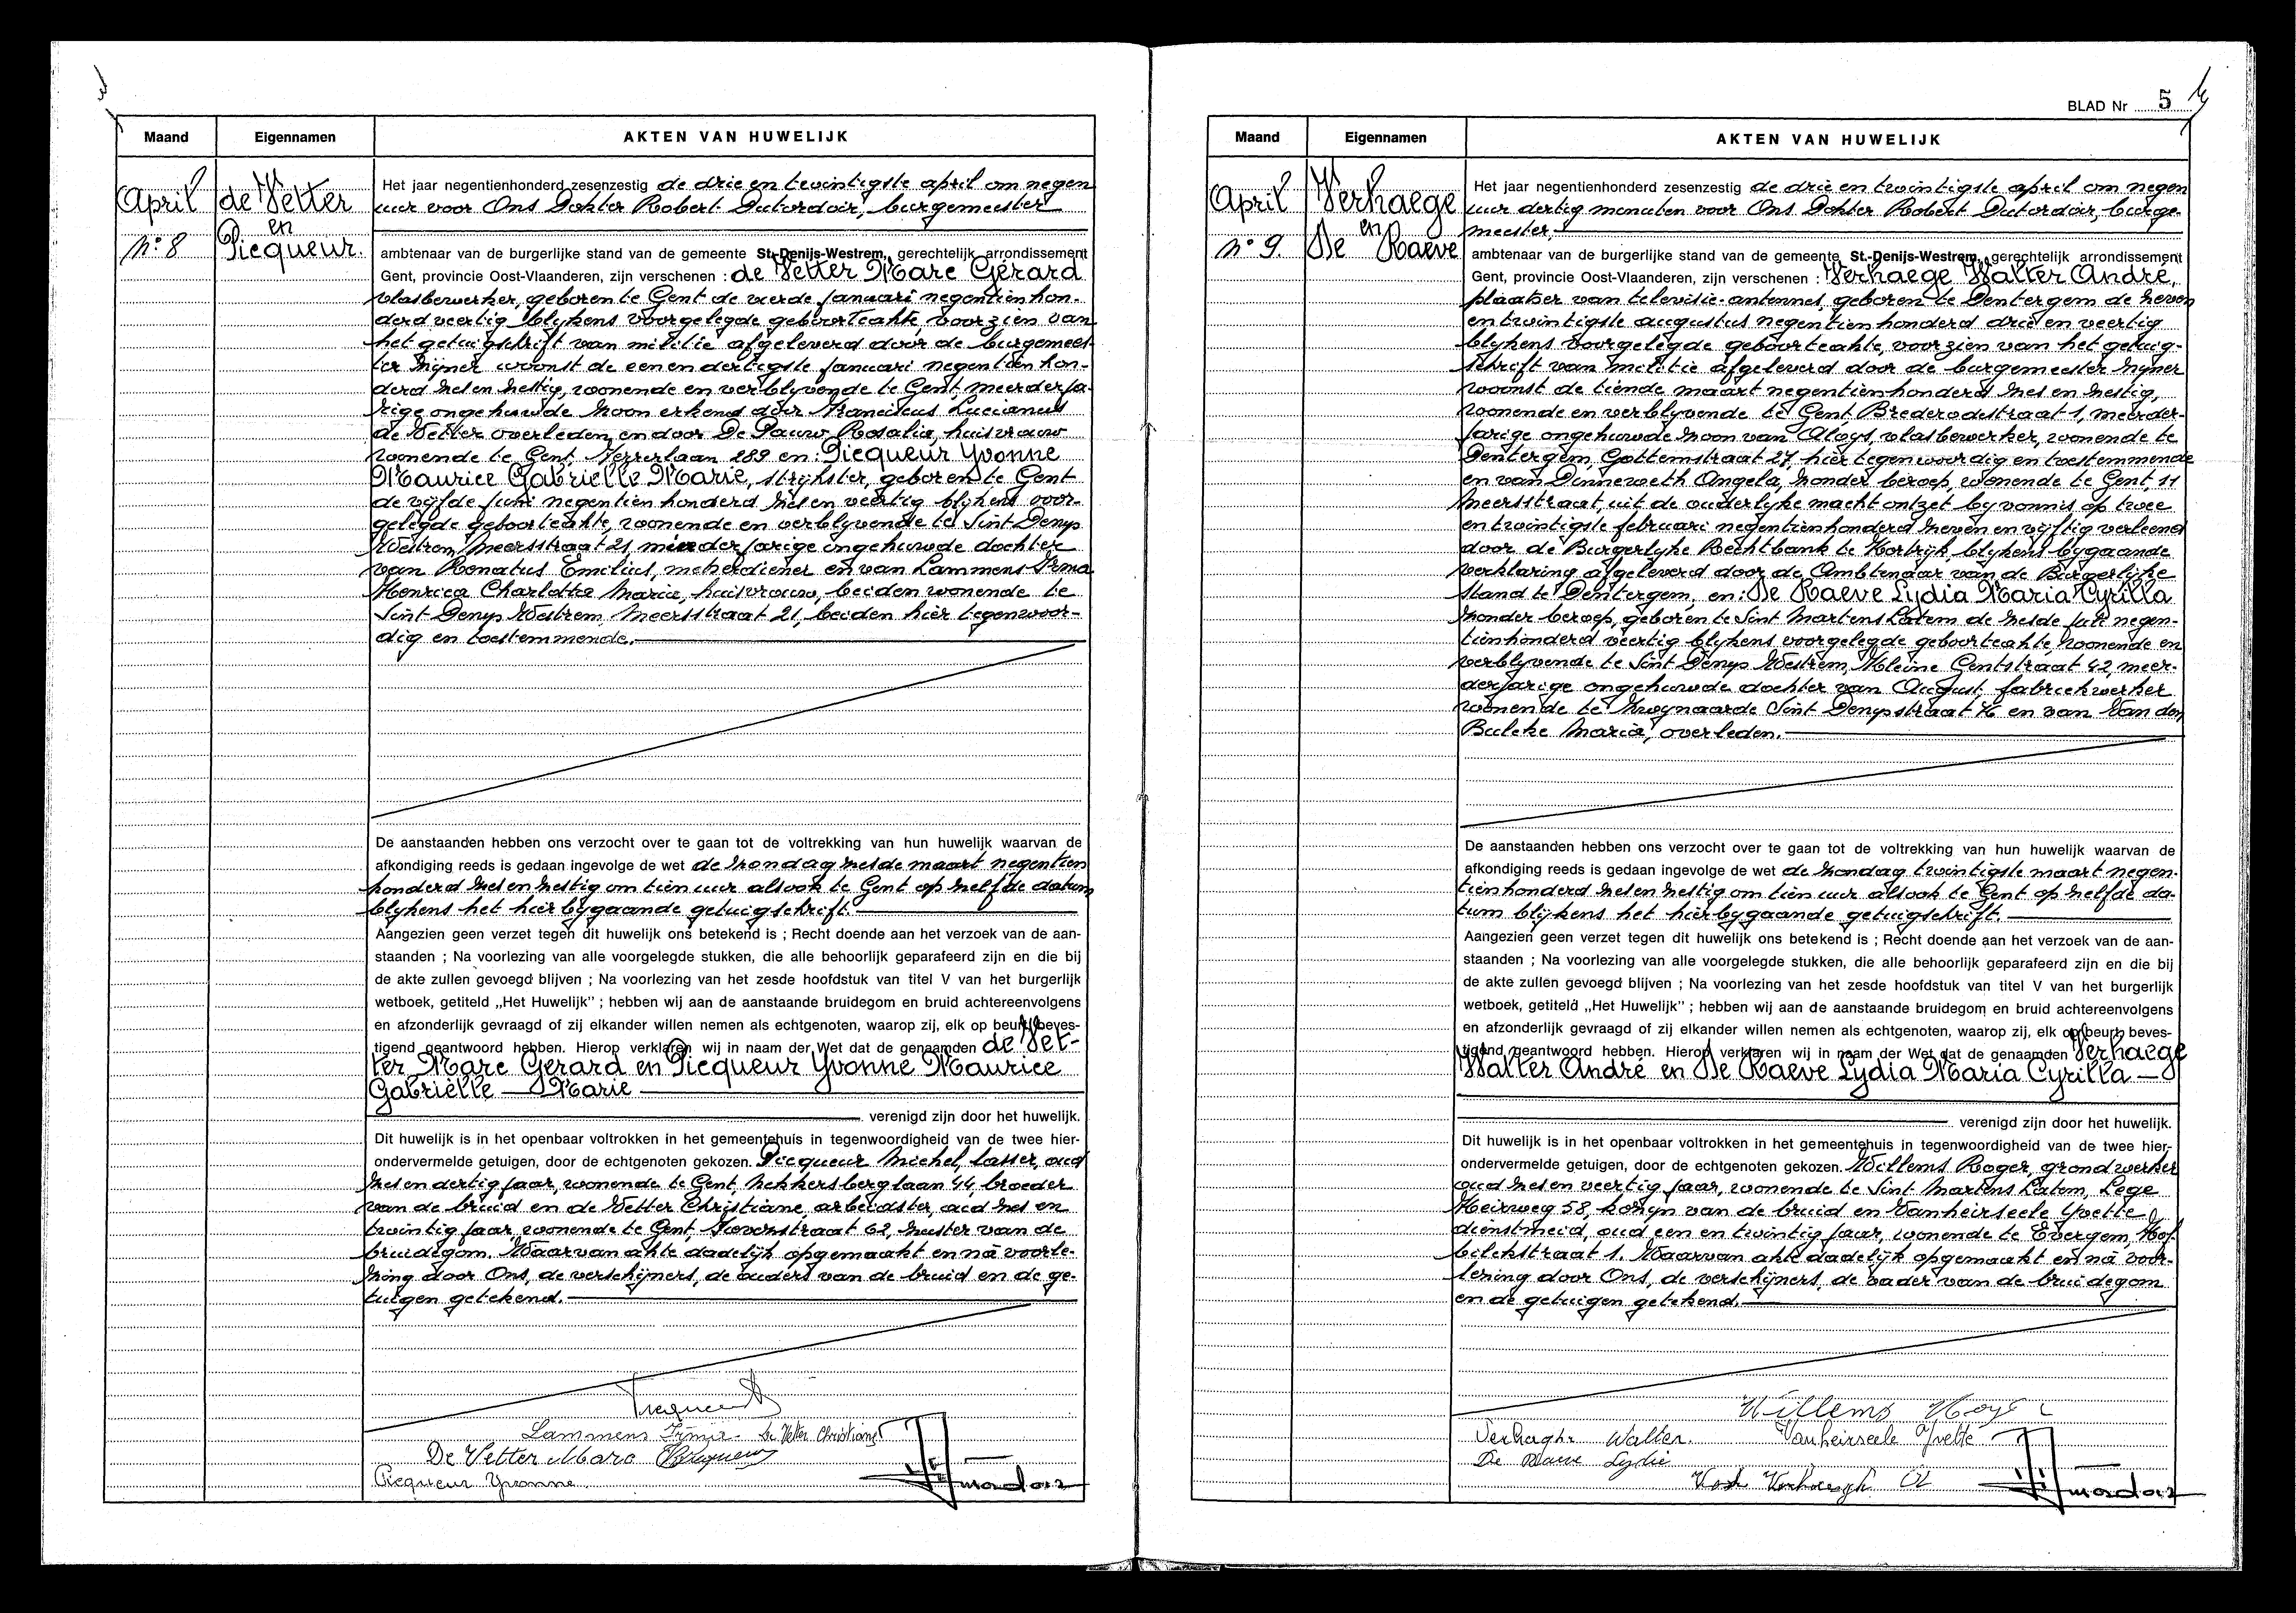 Maand
Eigennamen
AKTEN VAN HUWELIJK
April
de Vetter
en
N° 8
Picqueur.
Het jaar negentienhonderd zesenzestig de drie en twintigste april om negen
uur voor Ons Dokter Robert Dutordoir, burgemeester
ambtenaar van de burgerlijke stand van de gemeente St.-Denijs-Westrem, gerechtelijk arrondissement
Gent, provincie Oost-Vlaanderen, zijn verschenen : de Vetter Marc Gérard
vlasbewerker, geboren te Gent de vierde januari negentien hon-
derd veertig blijkens voorgelegde geboorteakte, voorzien van
het getuigschrift van militie afgeleverd door de burgemees-
ter zijner woonst de een en dertigste januari negentien hon-
derd zes en zestig, wonende en verblijvende te Gent, meerderja-
rige ongehuwde zoon erkend door Franciscus Lucianus
de Vetter overleden en door De Pauw Rosalia, huisvrouw
wonende te Gent, 289 en : Picqueur Yvonne
Maurice Gabrielle Marie, strijkster, geboren te Gent
de vijfde juni negentien honderd zes en veertig blijkens voor-
gelegde geboorteakte, wonende en verblijvende te Sint Denijs
Westrem, Meersstraat 21, minderjarige ongehuwde dochter
van Renatus Emilius, metserdiener en van Lammens Irma
Henrica Charlotta Maria, huisvrouw, beiden wonende te
Sint Denijs Westrem, Meersstraat 21, beiden hier tegenwoor-
dig en toestemmende.
De aanstaanden hebben ons verzocht over te gaan tot de voltrekking van hun huwelijk waarvan de
afkondiging reeds is gedaan ingevolge de wet de zondag zesde maart negentien
honderd zes en zestig om tien uur alsook te Gent op zelfde datum
blijkens het hierbijgaande getuigschrift.
Aangezien geen verzet tegen dit huwelijk ons betekend is ; Recht doende aan het verzoek van de aan-
staanden ; Na voorlezing van alle voorgelegde stukken, die alle behoorlijk geparafeerd zijn en die bij
de akte zullen gevoegd blijven ; Na voorlezing van het zesde hoofdstuk van titel V van het burgerlijk
wetboek, getiteld „Het Huwelijk" ; hebben wij aan de aanstaande bruidegom en bruid achtereenvolgens
en afzonderlijk gevraagd of zij elkander willen nemen als echtgenoten, waarop zij, elk op beurt, beves-
tigend geantwoord hebben. Hierop verklaren wij in naam der Wet dat de genaamden de Vet-
ter Marc Gerard en Picqueur Yvonne Maurice
Gabriëlle Marie
verenigd zijn door het huwelijk.
Dit huwelijk is in het openbaar voltrokken in het gemeentehuis in tegenwoordigheid van de twee hier-
ondervermelde getuigen, door de echtgenoten gekozen. Picqueur Michel, lasser, oud
zes en dertig jaar, wonende te Gent, Nekkersberglaan 44, broeder
van de bruid en de Vetter Christiane, arbeidster, oud zes en
twintig jaar, wonende te Gent, 62, zuster van de
bruidegom. Waarvan akte dadelijk opgemaakt en nà voorle-
zing door Ons, de verschijners, de ouders van de bruid en de ge-
tuigen getekend.
Picqueur
Lammens Irma De Vetter Christiane
De Vetter Marc Picqueur
Picqueur Yvonne
BLAD Nr 5
Maand
Eigennamen
AKTEN VAN HUWELIJK
April
Verhaege
en
N° 9.
De Raeve
Het jaar negentienhonderd zesenzestig de drie en twintigste april om negen
uur dertig minuten voor Ons Dokter Robert Dutordoir, burge-
meester,
ambtenaar van de burgerlijke stand van de gemeente St.-Denijs-Westrem, gerechtelijk arrondissement
Gent, provincie Oost-Vlaanderen, zijn verschenen : Verhaege Walter André,
plaatser van televisie-antennes, geboren te Dentergem de zeven
en twintigste augustus negentien honderd drie en veertig
blijkens voorgelegde geboorteakte, voorzien van het getuig-
schrift van militie afgeleverd door de burgemeester zijner
woonst de tiende maart negentien honderd zes en zestig,
wonende en verblijvende te Gent, Brederodestraat 1, meerder-
jarige ongehuwde zoon van Aloys, vlasbewerker, wonende te
Dentergem, Gottemstraat 27, hier tegenwoordig en toestemmende
en van Dinneweth Angela, zonder beroep, wonende te Gent, 11
Meersstraat, uit de ouderlijke macht ontzet bij vonnis op twee
en twintigste februari negentienhonderd zeven en vijftig verleend
door de Burgerlijke Rechtbank te Kortrijk blijkens bijgaande
verklaring afgeleverd door de Ambtenaar van de Burgerlijke
Stand te Dentergem, en : De Raeve Lydia Maria Cyrilla
zonder beroep, geboren te Sint Martens Latem de zesde juli negen-
tienhonderd veertig blijkens voorgelegde geboorteakte wonende en
verblijvende te Sint Denijs Westrem, Kleine Gentstraat 42, meer-
derjarige ongehuwde dochter van August, fabriekwerker
wonende te Zwijnaarde Sint Denijsstraat 76 en van Van den
Bulcke Maria, overleden.
De aanstaanden hebben ons verzocht over te gaan tot de voltrekking van hun huwelijk waarvan de
afkondiging reeds is gedaan ingevolge de wet de zondag twintigste maart negen-
tienhonderd zes en zestig om tien uur alsook te Gent op zelfde da-
tum blijkens het hierbijgaande getuigschrift.
Aangezien geen verzet tegen dit huwelijk ons betekend is ; Recht doende aan het verzoek van de aan-
staanden ; Na voorlezing van alle voorgelegde stukken, die alle behoorlijk geparafeerd zijn en die bij
de akte zullen gevoegd blijven ; Na voorlezing van het zesde hoofdstuk van titel V van het burgerlijk
wetboek, getiteld „Het Huwelijk" ; hebben wij aan de aanstaande bruidegom en bruid achtereenvolgens
en afzonderlijk gevraagd of zij elkander willen nemen als echtgenoten, waarop zij, elk op beurt, beves-
tigend geantwoord hebben. Hierop verklaren wij in naam der Wet dat de genaamden Verhaege
Walter André en De Raeve Lydia Maria Cyrilla
verenigd zijn door het huwelijk.
Dit huwelijk is in het openbaar voltrokken in het gemeentehuis in tegenwoordigheid van de twee hier-
ondervermelde getuigen, door de echtgenoten gekozen. Willems Roger, grondwerker
oud zes en veertig jaar, wonende te Sint Martens Latem, Lege
Heirweg 58, kozijn van de bruid en Vanheirseele Yvette,
dienstmeid, oud een en twintig jaar, wonende te Evergem, Hof
bilckstraat 1. Waarvan akte dadelijk opgemaakt en nà voor-
lezing door Ons, de verschijners, de vader van de bruidegom
en de getuigen getekend.
Willems
Verhaeghe Walter. Vanheirseele Yvette
De Raeve Lydie